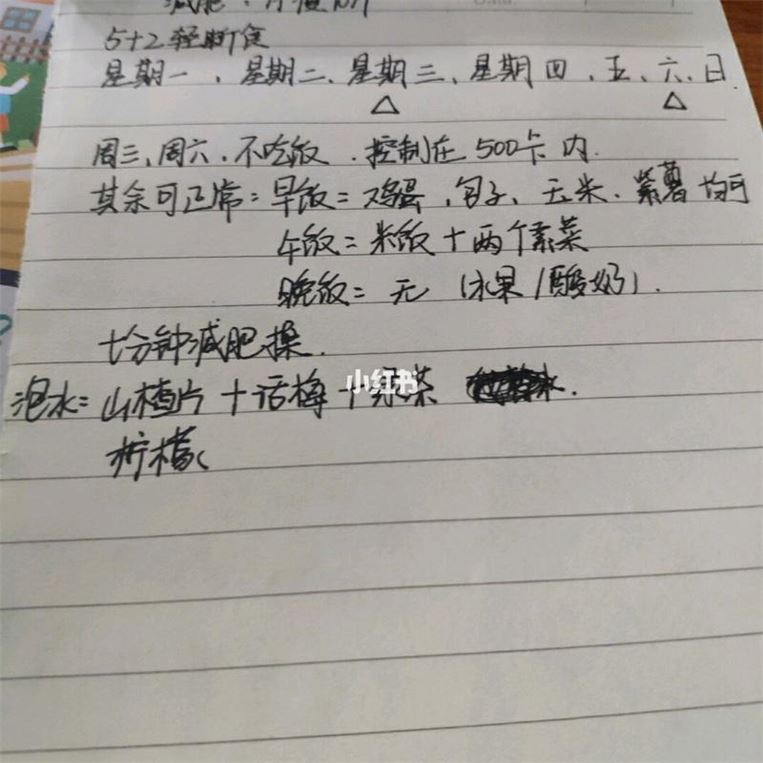 减肥:月瘦10斤
5+2轻断食
星期一、星期二、星期三、星期四、五、六、日.
△ △
周三、周六、不吃饭、控制在500卡内.
其余可正常=早饭=鸡蛋、包子、玉米、紫薯均可
午饭=米饭+两个素菜
晚饭=无(水果/酸奶).
十分钟减肥操.
泡水=山楂片+话梅+绿茶
柠檬(
小红书